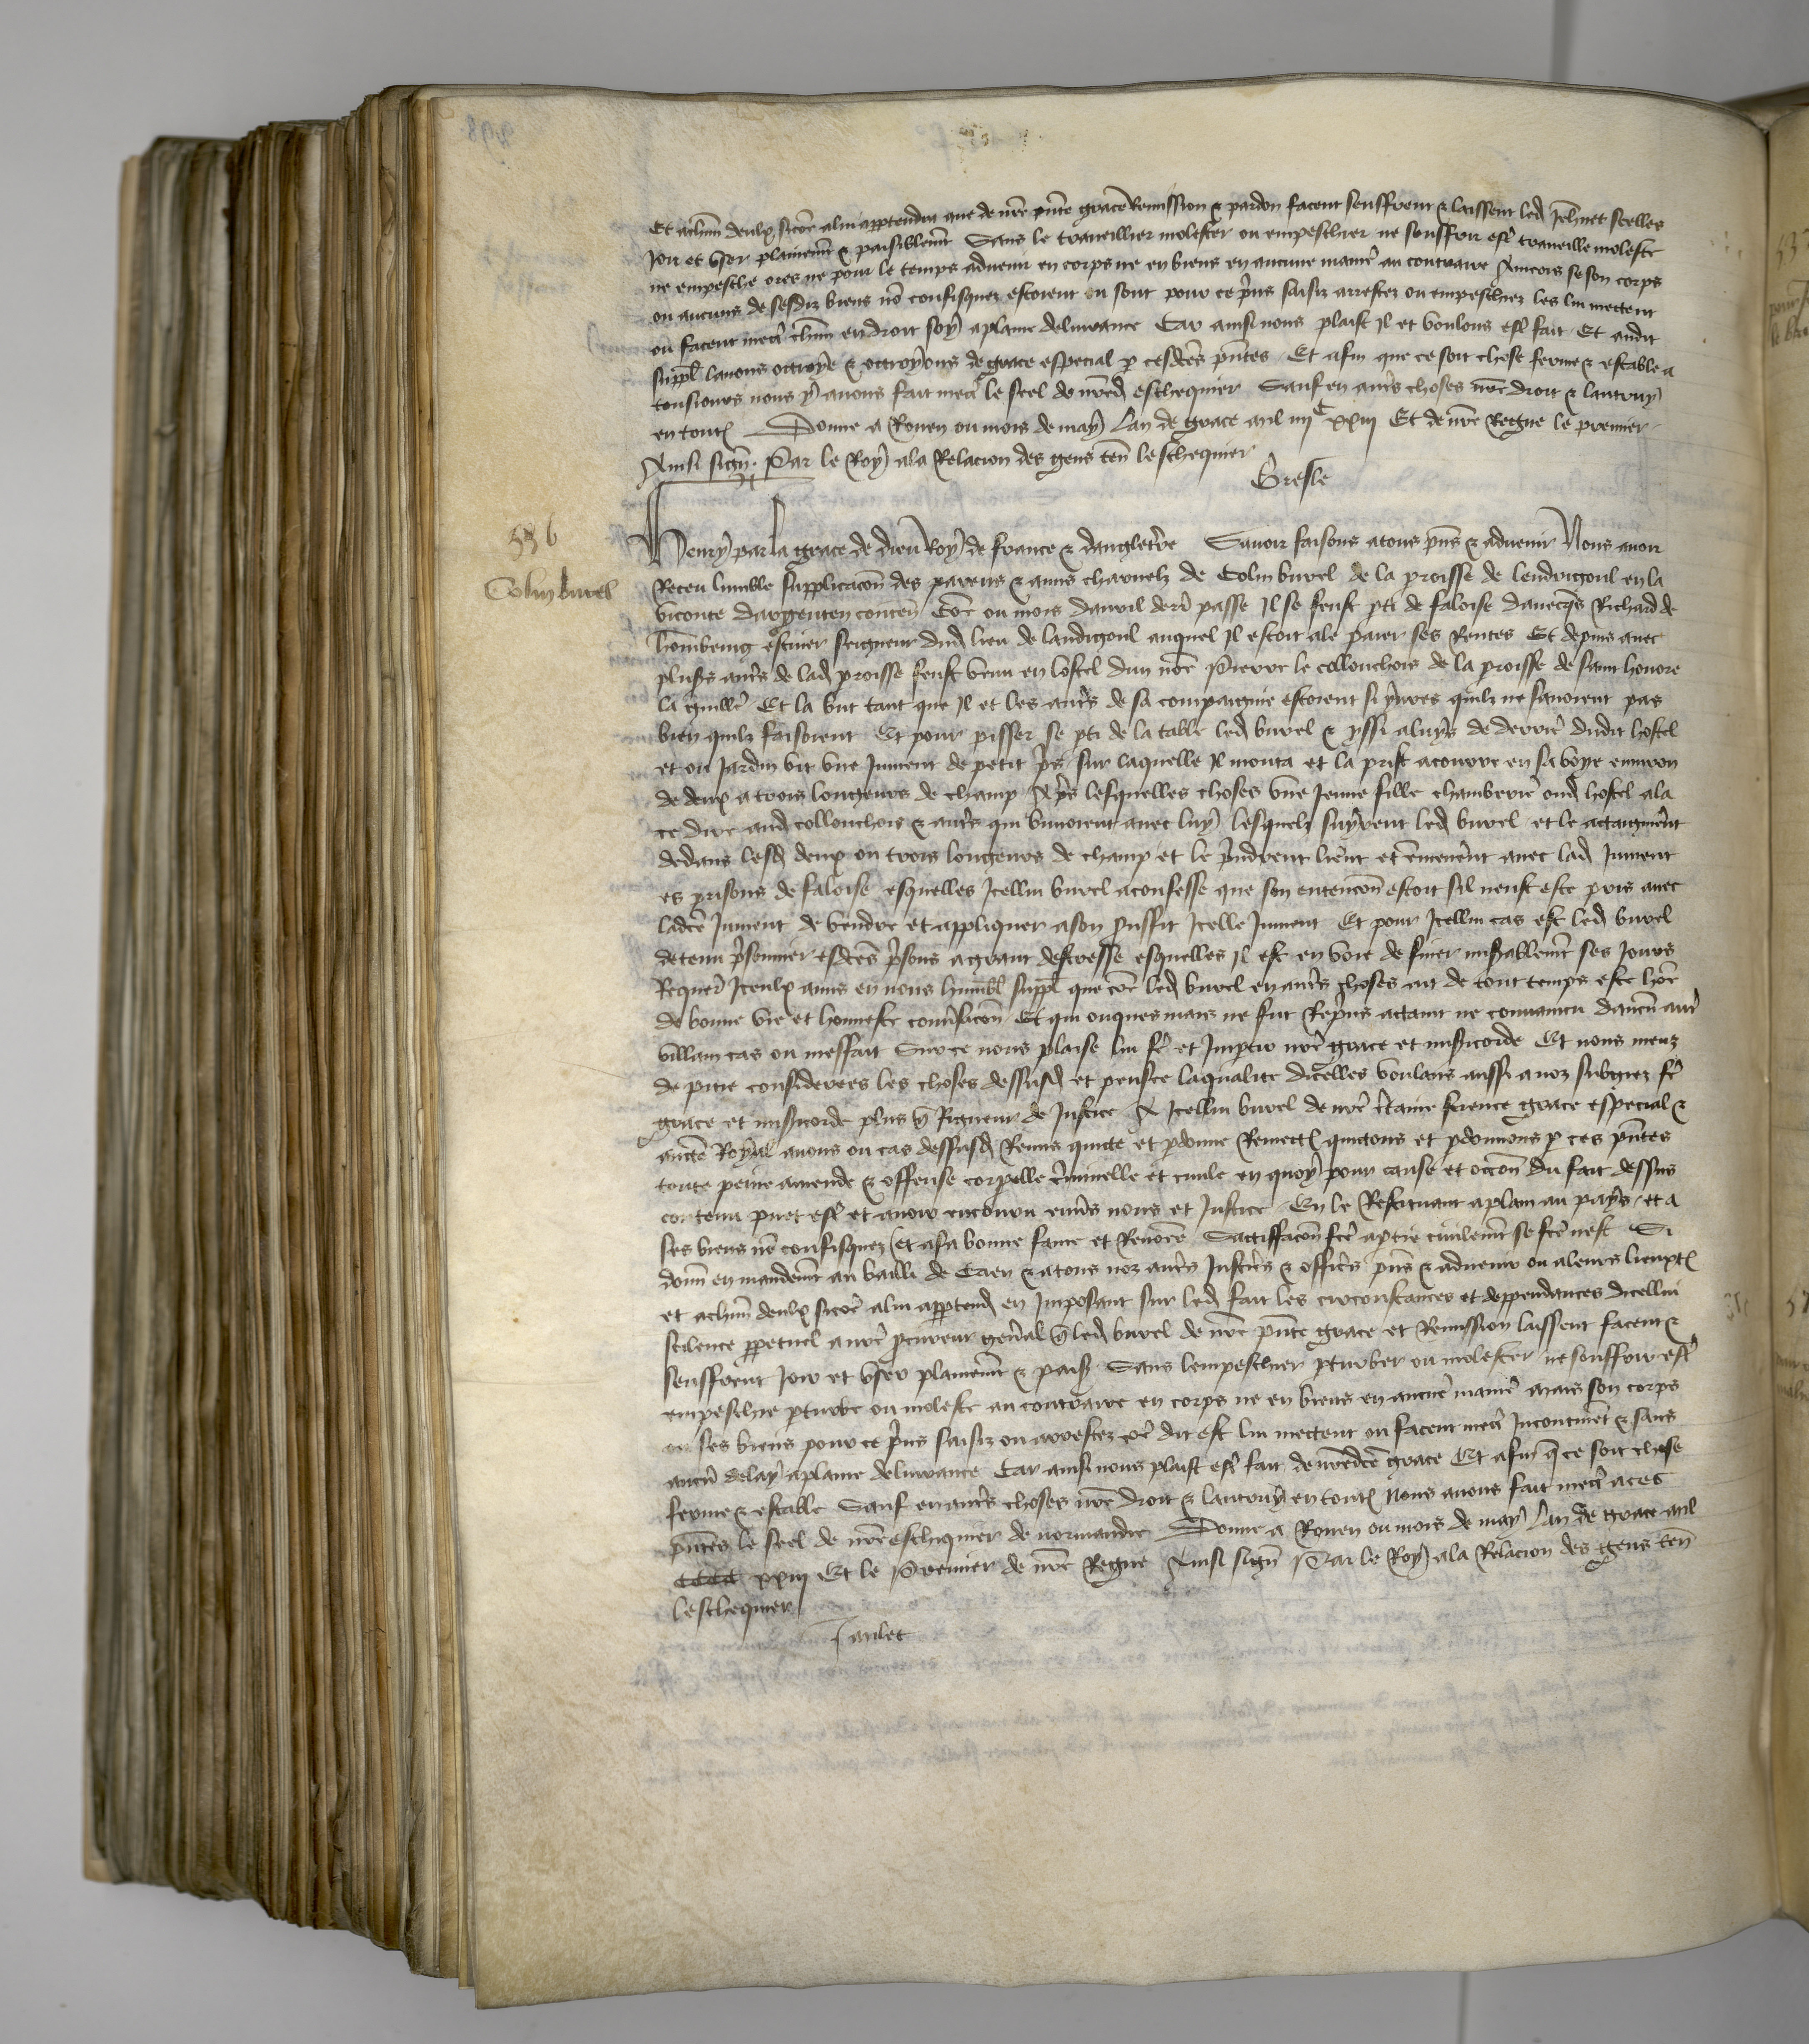 Et achm̄ deulx sicōe a lui appendra que de nr̄e pn̄te grace Remission & pardon facent seuffrent & laissent led Jehnnet seelles
Joir et user plainemt̄ & paisiblemt̄ Sans le traveillier molester ou empeschier ne souffrir estr̄ traveille moleste
ne empesche ores ne pour le temps advenir en corps ne en biens en aucune manr̄e au contraire Aincois se son corps
ou aucuns de sesdiz biens nō confisquez estoient ou sont pour ce pr̄ins saisiz arrestez ou empeschiez les lui mettent
ou facent mectr̄ chm̄ endroit soy a plaine delivrance Car ainsi nous plaist Il et voulons estr̄ fait Et audit
suppl̄ lavons octroye & octroyons de grace especial p cesdictēs pn̄tes Et afin que ce soit chose ferme & estable a
tousiours nous y avons fait mectr̄ le seel de nr̄ed eschequier Sauf en autr̄s choses nr̄e droit & lautruy
en toutes Donne a Rouen ou mois de may Lan de grace mil iiijC xxiij Et de nr̄e Regne le premier
Ainsi sign̄ Par le Roy a la Relacion des gens ten̄ leschequier
Gresle
536
Colin burel
Henry par la grace de dieu Roy de france & dangletr̄re Savoir faisons a tous pn̄s & advenir Nous avon
Receu lumble supplicacōn des parens & amis charnelz de Colin burel de la proisse de lendrigoul en la
viconte dargenten conten̄ Cōe ou mois davril derr̄ passe Il se feust pti de faloise davecqs Richard de
escuier seigneur dud lieu de landigoul auquel Il estoit ale paier ses Rentes Et depuis avec
plus̄rs autr̄s de lad proisse feust venu en lostel dun nōe Pierre le collonchois de la proisse de saint honore
la guille Et la but tant que Il et les autr̄s de sa compaignie estoient si yvres quilz ne savoient pas
bien quilz faisoient Et pour pisser se pti de la table led burel & yssi a luys de derrier̄ dudit hostel
et ou Jardin vit une Jument de petit pr̄is sur laquelle Il monta et la prist a courre en sa voye environ
de deux a trois longeurs de champ Apr̄s lesquelles choses une Jeune fille chamberier̄ oud hostel ala
ce dire aud collonchois & autr̄s qui buvoient avec luy lesquelz suyrent led burel et le actaignir̄nt
dedans lesd deux ou trois longeurs de champ et le pr̄indrent lier̄nt et emmener̄nt avec lad Jument
es prisons de faloise esquelles Icellui burel a confesse que son entencōn estoit sil neust este pris avec
ladictē Jument de vendre et appliquer a son prouffit Icelle Jument Et pour Icellui cas est led burel
detenu pr̄sonnier esdictēs pr̄isons a grant destresse esquelles Il est en voie de finer mis̄ablemt̄ ses Jours
Requer̄ Iceulx amis en nous humbl̄ suppl̄ que cōe led burel en autr̄s choses ait de tout temps este hōe
de bonne vie et honneste conv̄sacōn Et qui onquesmais ne fut Repr̄ins actaint ne convaincu daucūn autr̄
villain cas ou meffait Sur ce nous plaise lui fr̄e et Impartir nr̄e grace et mis̄icorde Et nous meuz
de pitie considerees les choses dessusd et pensee la qualite dicelles voulans aussi a noz subgiez fr̄e
grace et mis̄icorde plus q̄ Rigueur de Justice A Icellui burel de nr̄e cr̄taine science grace especial &
auctē Royal avons ou cas dessusd Remis quitte et pdonne Remectons quictons et pdonnons p ces pn̄tes
toute peine amende & offense corpelle cr̄iminelle et civile en quoy pour cause et occōn du fait dessus
contenu puet estr̄ et avoir encouru env̄rs nous et Justice En le Restituant a plain au pays et a
ses biens nō confisquez et a sa bonne fame et Renōee Sattisfacōn fctē a ptie civilemt̄ se fctē nest Si
donn̄ en mandemt̄ au bailli de Caen & a tous noz autr̄s Justic̄rs & offic̄rs pn̄s & advenir ou a leurs lieuxtenans
et achm̄ deulx sicōe a lui apptend en Imposant sur led fait les circonstances et deppendances dicellui
scilence ppetuel a nr̄e pcureur gen̄al q̄ led burel de nr̄e pn̄te grace et Remission laissent facent &
seuffrent Joir et user plainemt̄ & paisi Sans lempeschier pturber ou molester ne souffrir estr̄
empeschie pturbe ou moleste au contraire en corps ne en biens en aucune manr̄e mais son corps
ou ses biens pour ce pr̄ins saisiz ou arrestez cōe dit est lui mettent ou facent mectr̄ Incontinēt & sans
aucun delay a plaine delivrance Car ainsi nous plaist estr̄ fait de nr̄edictē grace Et afin q̄ ce soit chose
ferme & estable Sauf en autr̄s choses nr̄e droit & lautruy en toutes Nous avons fait mectr̄ a ces
pn̄tes le seel de nr̄e eschequier de normandie Donne a Rouen ou mois de may Lan de grace mil
CCCC xxiij Et le Premier de nr̄e Regne Ainsi sign̄ Par le Roy a la Relacion des gens ten̄
leschequier
Janlet